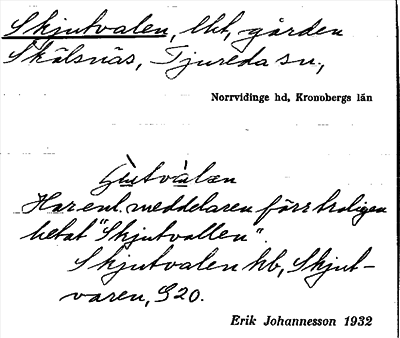 Skjutvalen, lht, gården
Skälsnäs, Tjureda sn,
Norrvidinge hd, Kronobergs län
Har enl. meddelaren förr troligen
hetat "Skjutvallen".
Skjutvalen hb, Skjut-
varen, G20.
Erik Johannesson 1932